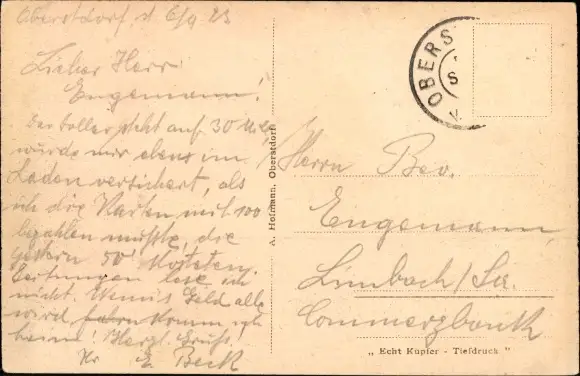 Oberstdorf, d 6/9 23
Lieber Herr
Engemann!
Der Dollar steht auf 30 Mill,
wurde mir eben im
Laden versichert, als
ich die Karten mit 100
bezahlen mußte, die
gestern 50 kosteten.
Zeitungen lese ich
nicht. Wenn's Geld alle
wird fahr komm ich
heim! Herzl. Gruß!
Ihr E. Beck
A. Hofmann, Oberstdorf
OBERS
Herrn Bev.
Engemann,
Limbach/Sa.
Commerzbank
„ Echt Kupfer - Tiefdruck "